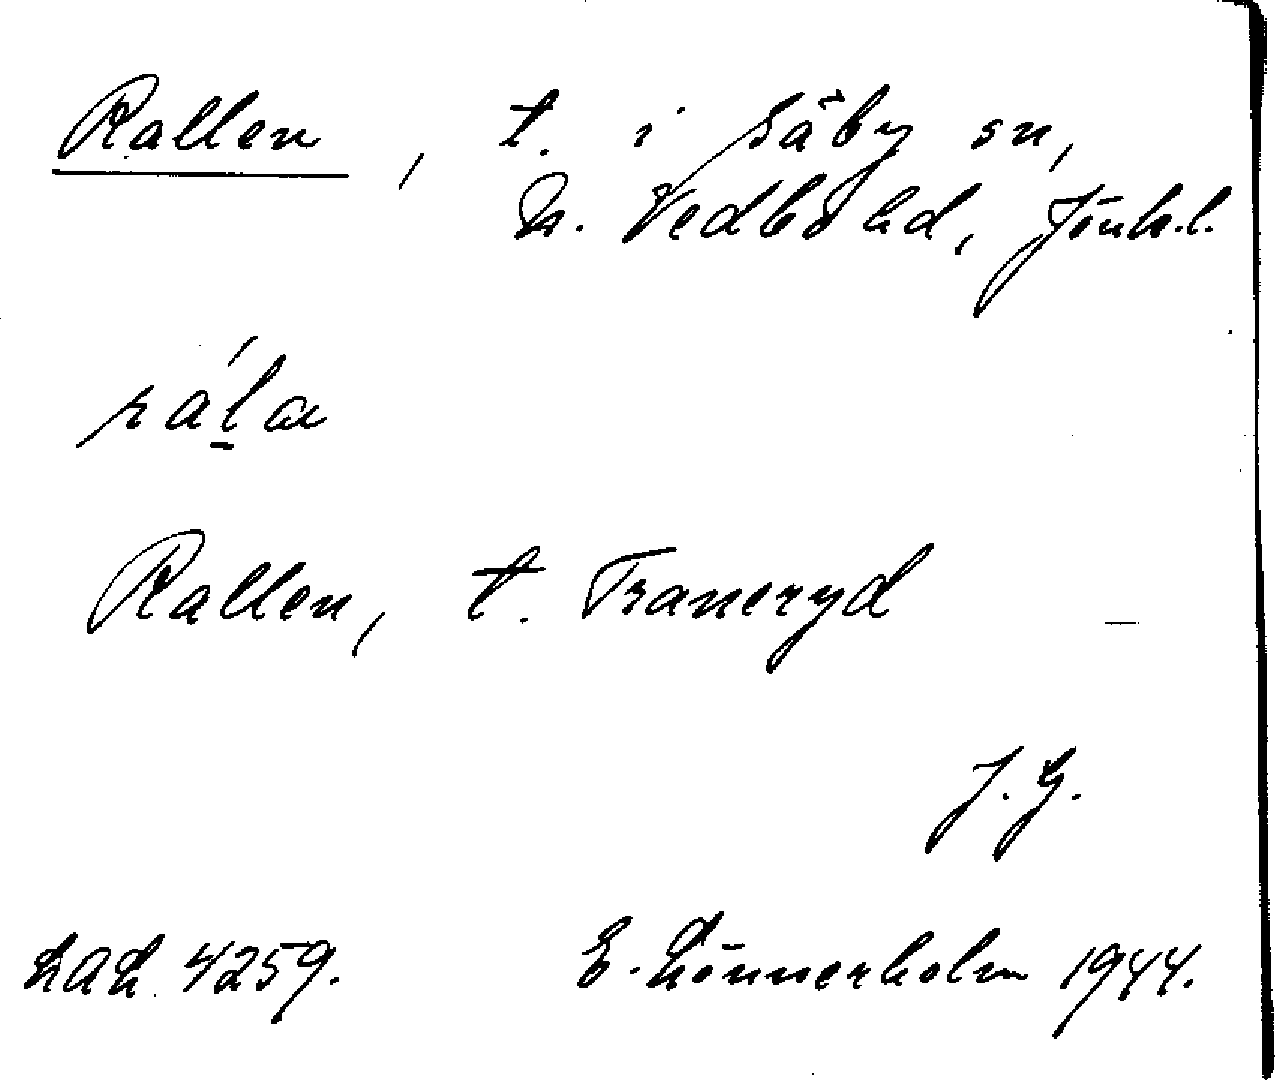 Rallen, t. i Säby sn,
N. Vedbo hd, Jönk.l.
rál̲a
Rallen, t. Traneryd
J. G.
LAL 4259. E. Lönnerholm 1944.